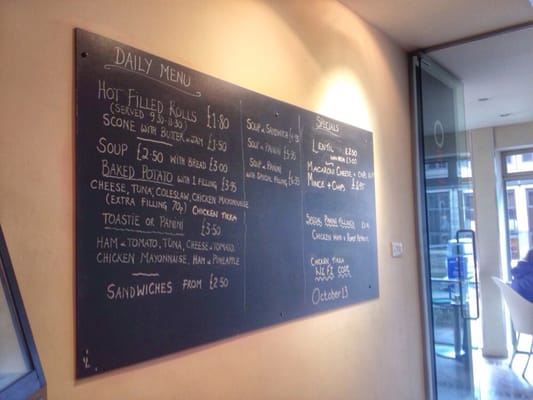 DAILY MENU
HOT FILLED ROLLS £1.80
(SERVED 9.30-11.30)
SCONE WITH BUTTER & JAM £1.50
SOUP £2.50 WITH BREAD £3.00
BAKED POTATO WITH 1 FILLING £3.95
CHEESE, TUNA, COLESLAW, CHICKEN MAYONNAISE
(EXTRA FILLING 70p) CHICKEN TIKKA
TOASTIE OR PANINI £3.50
HAM & TOMATO, TUNA, CHEESE & TOMATO,
CHICKEN MAYONNAISE, HAM & PINEAPPLE
SANDWICHES FROM £2.50
SOUP & SANDWICH
SOUP & PANINI
SOUP & PANINI
WITH SPECIAL FILLING
SPECIALS
LENTIL £2.50
£3.00
MACARONI CHEESE + CHIPS
MINCE + CHIPS
SPECIAL PANINI FILLINGS
CHICKEN HAM &
CHICKEN, TIKKA
October 13